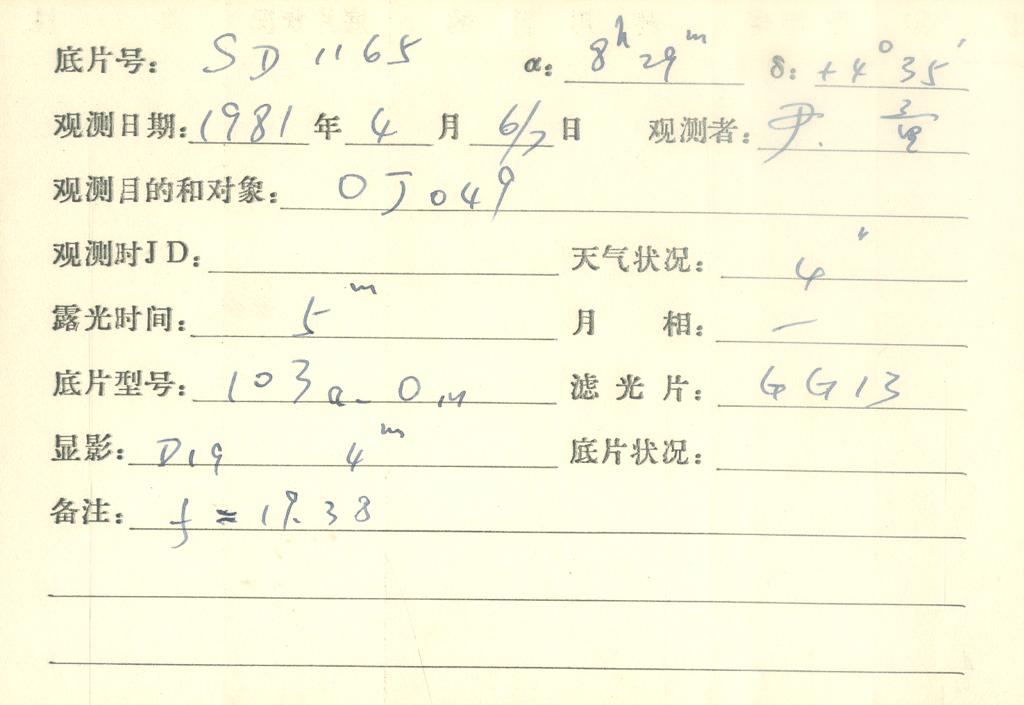 底片号: SD 1165 α: 8h 29m δ: +4° 35′
观测日期: 1981 年 4 月 6/7 日 观测者: 尹.
观测目的和对象: OJ 049
观测时JD: 天气状况: 4″
露光时间: 5m 月 相: 一
底片型号: 103a-O 滤光片: GG13
显影: D19 4m 底片状况:
备注: f = 19.38